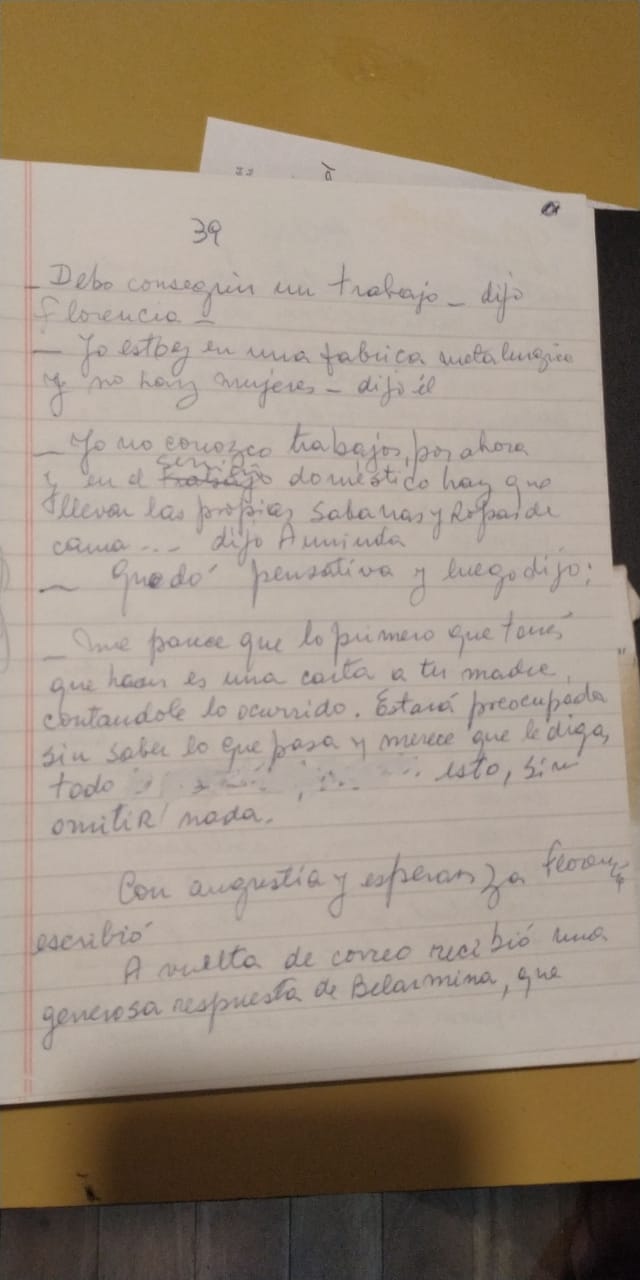 39
_ Debo conseguir un trabajo _ dijo
Florencia _
_ Yo estoy en una fabrica metalurgica
y no hay mujeres _ dijo él
_ Yo no conozco trabajos, por ahora
servicio
y en el trabajo doméstico hay que
llevar las propias sabanas y Ropas de
cama... dijo Aminda
_ Quedó pensativa y luego dijo:
_ Me parece que lo primero que tenés
que hacer es una carta a tu madre,
contandole lo ocurrido. Estará preocupada
sin saber lo que pasa y merece que le digas
todo esto, sin
omitiR nada.
Con angustia y esperanza Florencia
escribió
A vuelta de correo recibió una
generosa respuesta de Belarmina, que